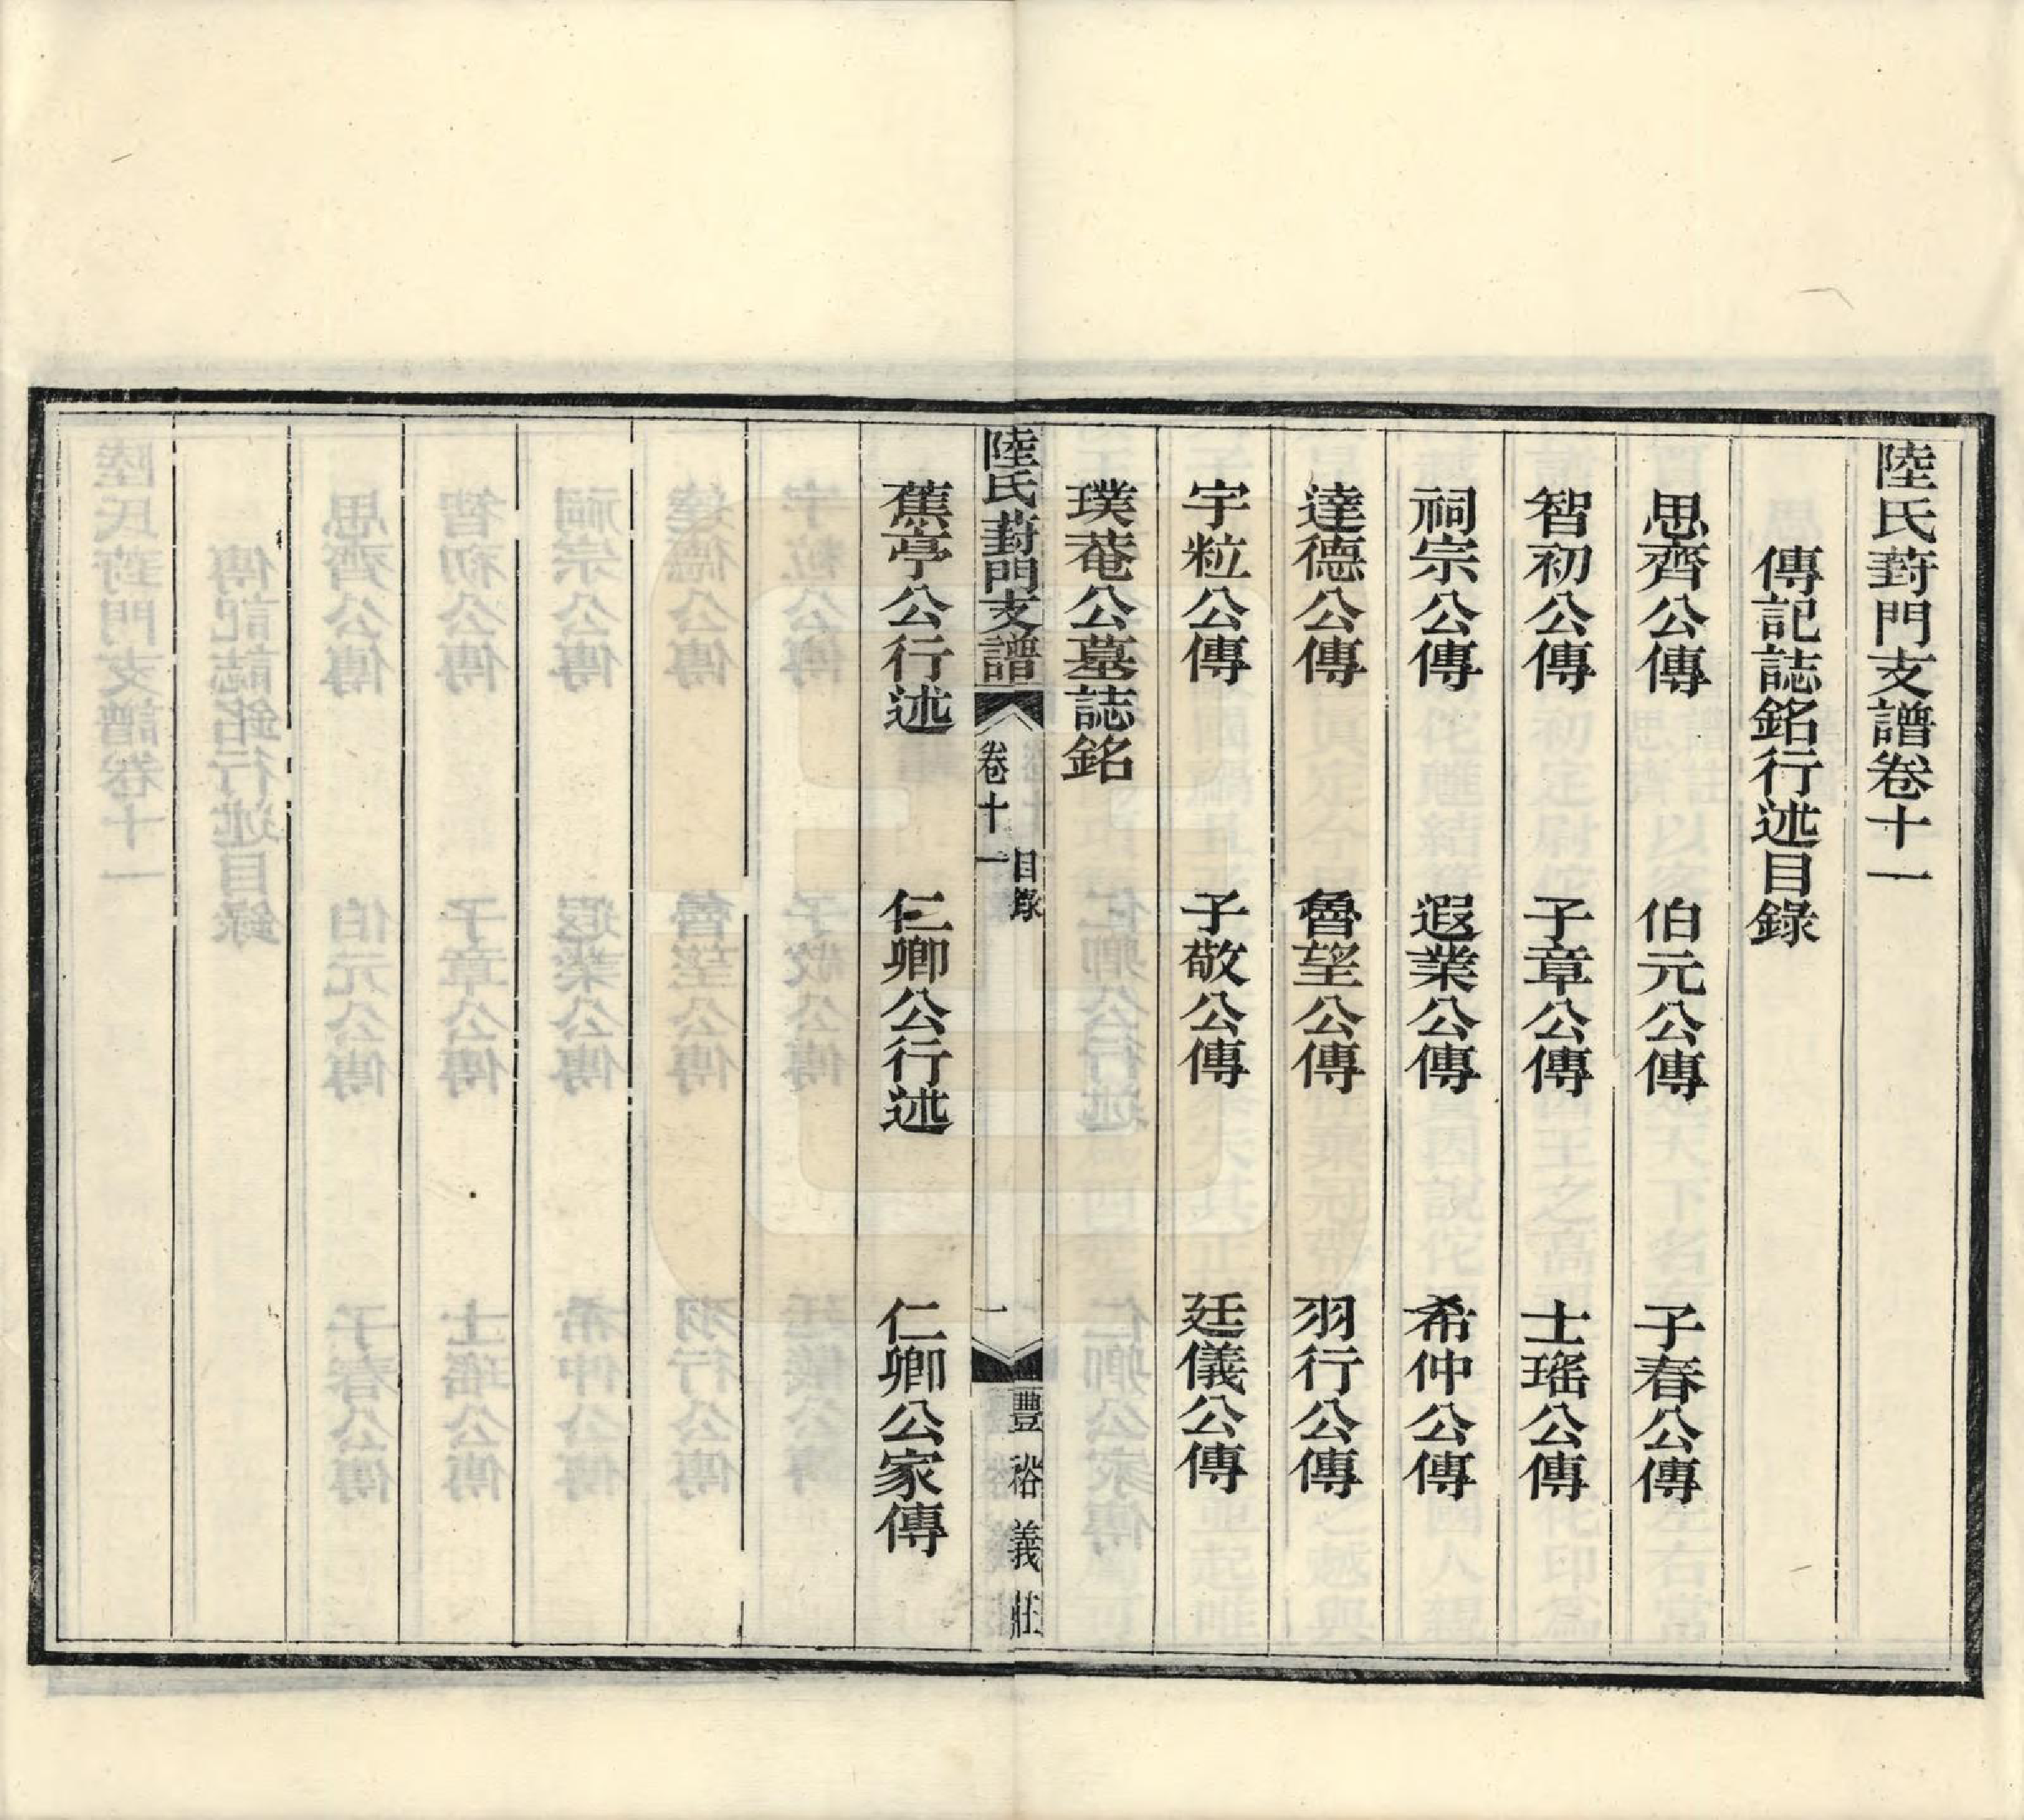 陸氏葑門支譜卷十一
傳記誌銘行述目錄
思齊公傳　伯元公傳　子春公傳
智初公傳　子章公傳　士瑤公傳
祠宗公傳　遐業公傳　希仲公傳
達德公傳　魯望公傳　羽行公傳
宇粒公傳　子敬公傳　廷儀公傳
璞菴公墓誌銘
陸氏葑門支譜　卷十一　目錄　一　豐裕義莊
蕉亭公行述　仁卿公行述　仁卿公家傳